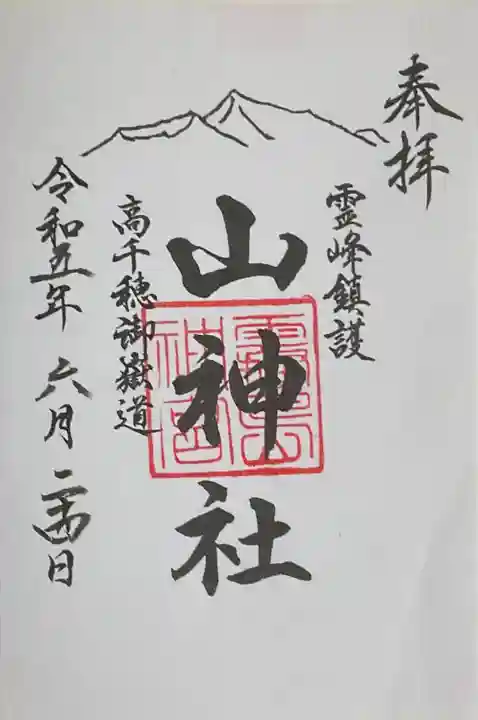 奉拝
霊峰鎮護
山神社
霧島
神宮
高千穂御嶽道
令和五年六月二十四日